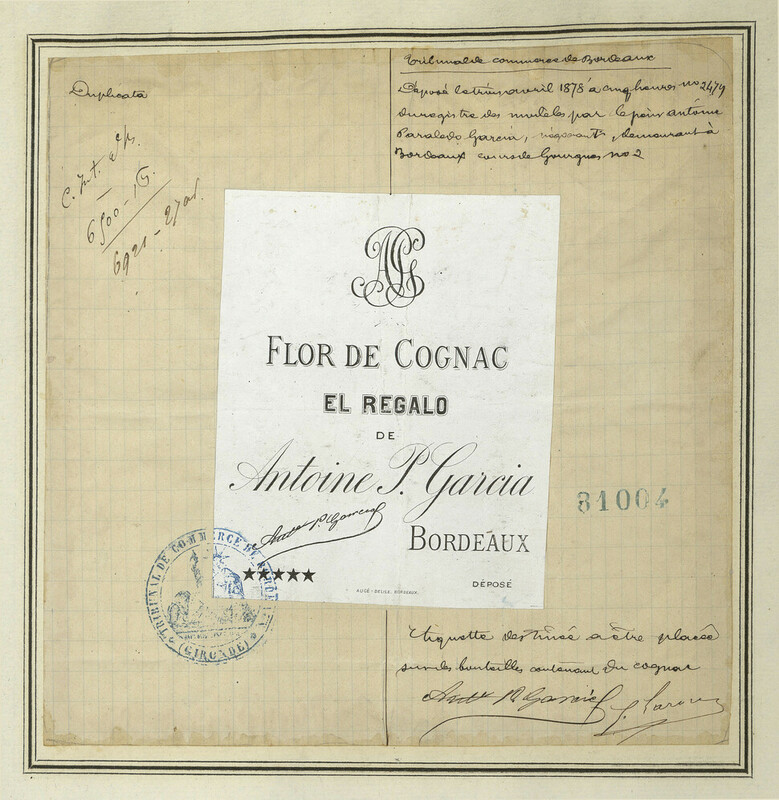 Tribunal de commerce de Bordeaux
Duplicata
Déposé le trois avril 1878 à cinq heures no 2474
du registre des modèles par le sieur Antoine
Garcia, négociant, demeurant à
Bordeaux cours de Gourgues no 2
6500 -
6921 -
AG
FLOR DE COGNAC
EL REGALO
DE
Antoine P. Garcia
Anto P. Garcia
BORDEAUX
★★★★★
DÉPOSÉ
31004
TRIBUNAL DE COMMERCE DE BORDEAUX
(GIRONDE)
Etiquette destinée à être placée
sur les bouteilles contenant du cognac
Anto P. Garcia